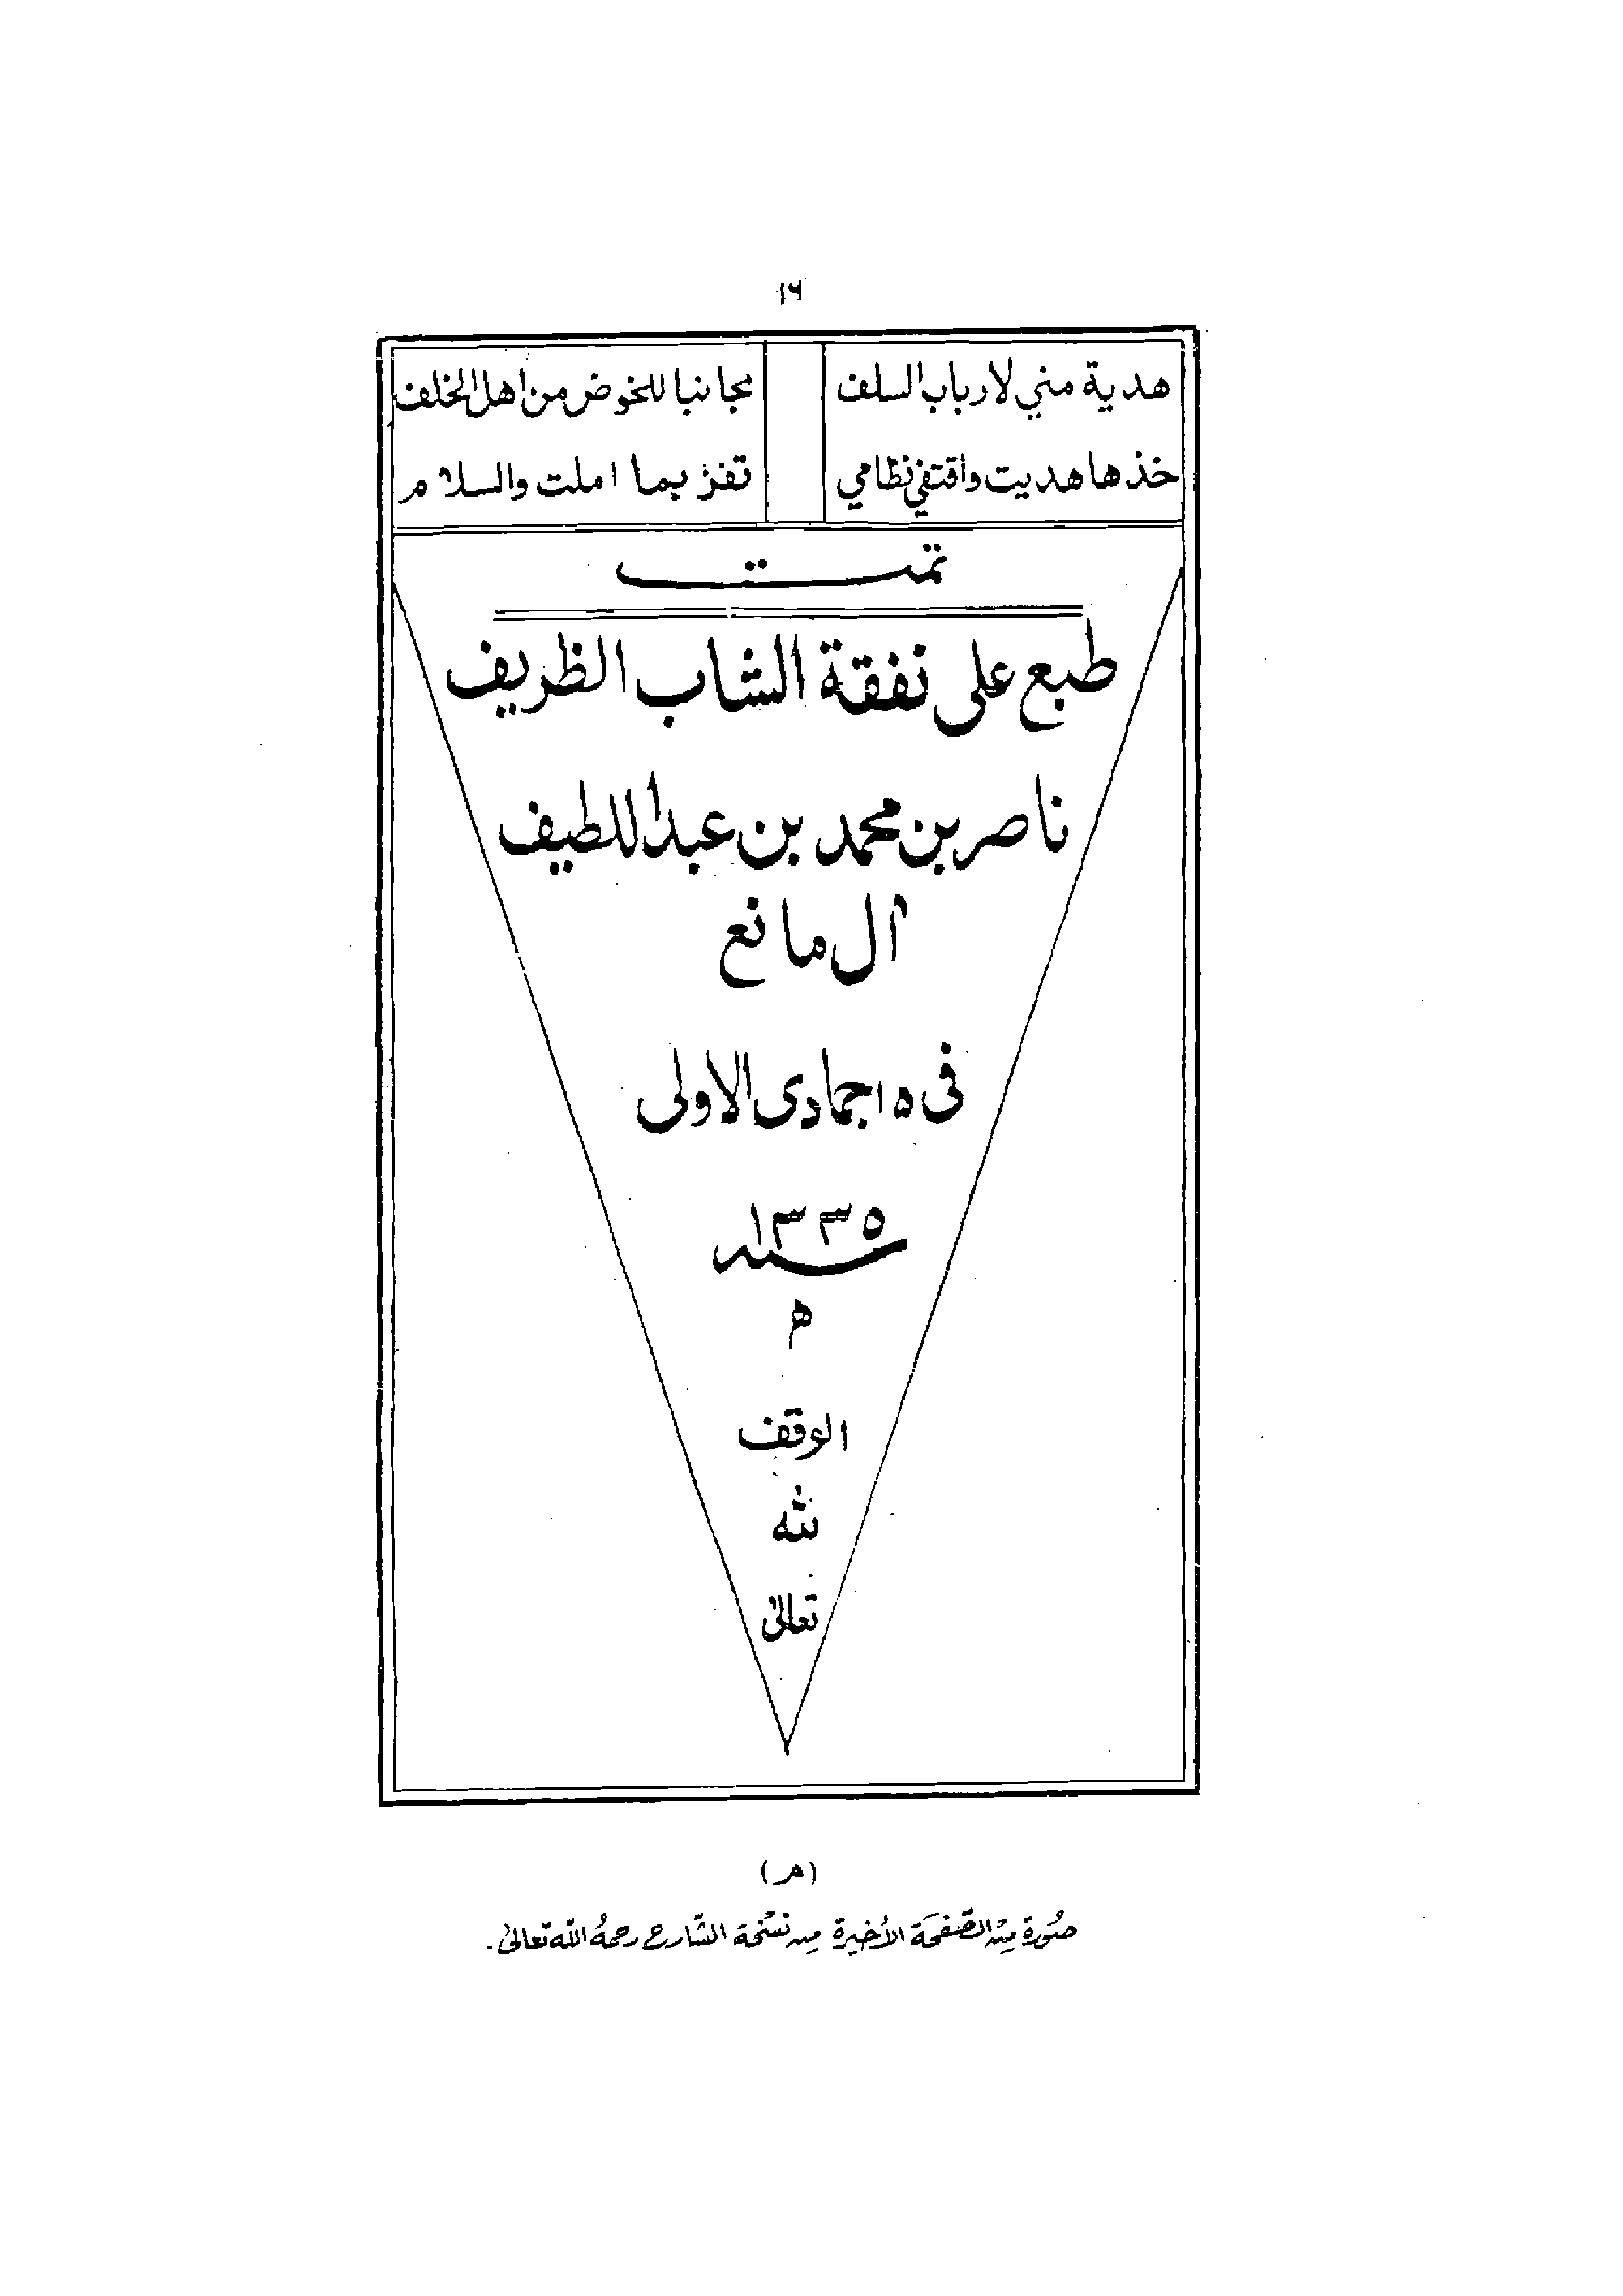 ١٦
هدية مني لارباب السلف مجانبا للخوض من اهل الخلف
خذها هديت واقتفي نظامي تفز بما املت والسلام
تمت
طبع على نفقة الشاب الظريف
ناصر بن محمد بن عبداللطيف
آل مانع
في ١٥ جمادى الاولى
سنة ١٣٣٥
ه
الوقف
لله
تعالى
(هـ)
صُورة مِنْ الصّفحَة الأخيرة مِن نسْخة الشّارح رحمهُ اللّه تعالىٰ.